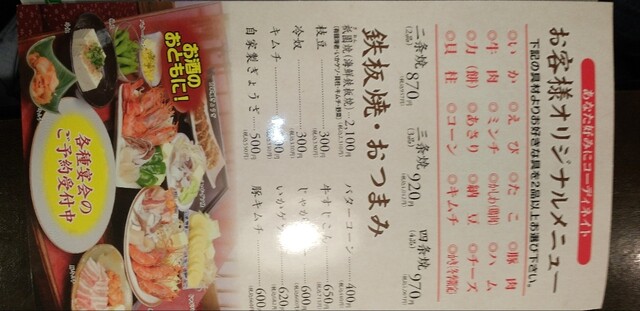 あなた好みにコーディネイト
お客様オリジナルメニュー
下記の具材よりお好きな具を2品以上お選び下さい。
◎いか ◎えび ◎たこ ◎豚肉
◎牛肉 ◎ミンチ ◎ハム
◎力(餅) ◎あさり ◎納豆 ◎チーズ
◎貝柱 ◎コーン ◎キムチ
二条焼 870円
(2品)
三条焼 920円
(3品)
四条焼 970円
(4品)
鉄板焼・おつまみ
祇園焼(海鮮鉄板焼) 2,100円
枝豆 300円
冷奴 300円
キムチ
自家製ぎょうざ 500円
バターコーン 400円
牛すじこん 650円
じゃが 600円
いかゲソ 620円
豚キムチ 600円
お酒の
おともに!
各種宴会の
ご予約受付中